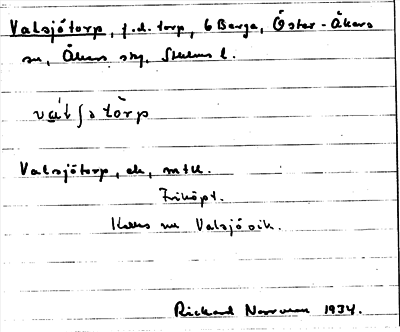 Valsjötorp, f.d. torp, 6 Berga, Öster-Åkers
sn, Åkers skg, Sthlms l.
Valsjötorp, ek, mtl.
Friköpt.
Valsjövik.
Rickard Norrman 1934.